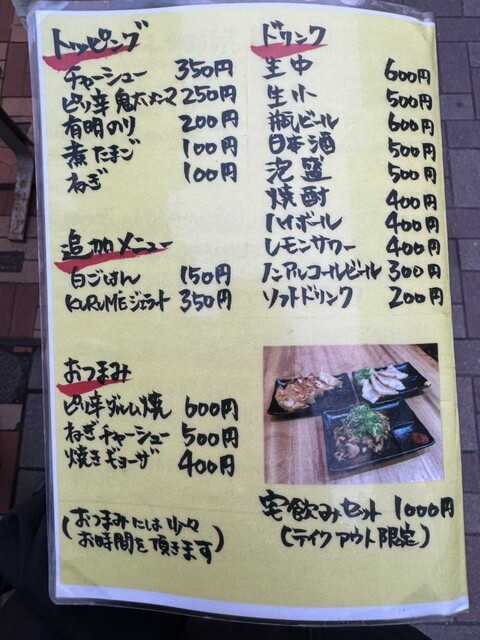 トッピング
チャーシュー 350円
ピリ辛鬼太メンマ 250円
有明のり 200円
煮たまご 100円
ねぎ 100円
追加メニュー
白ごはん 150円
KURUMEジェラート 350円
おつまみ
ピリ辛ダルム焼 600円
ねぎチャーシュー 500円
焼きギョーザ 400円
(おつまみには少々
お時間を頂きます)
ドリンク
生中 600円
生小 500円
瓶ビール 600円
日本酒 500円
泡盛 500円
焼酎 400円
ハイボール 400円
レモンサワー 400円
ノンアルコールビール 300円
ソフトドリンク 200円
宅飲みセット 1000円
(テイクアウト限定)